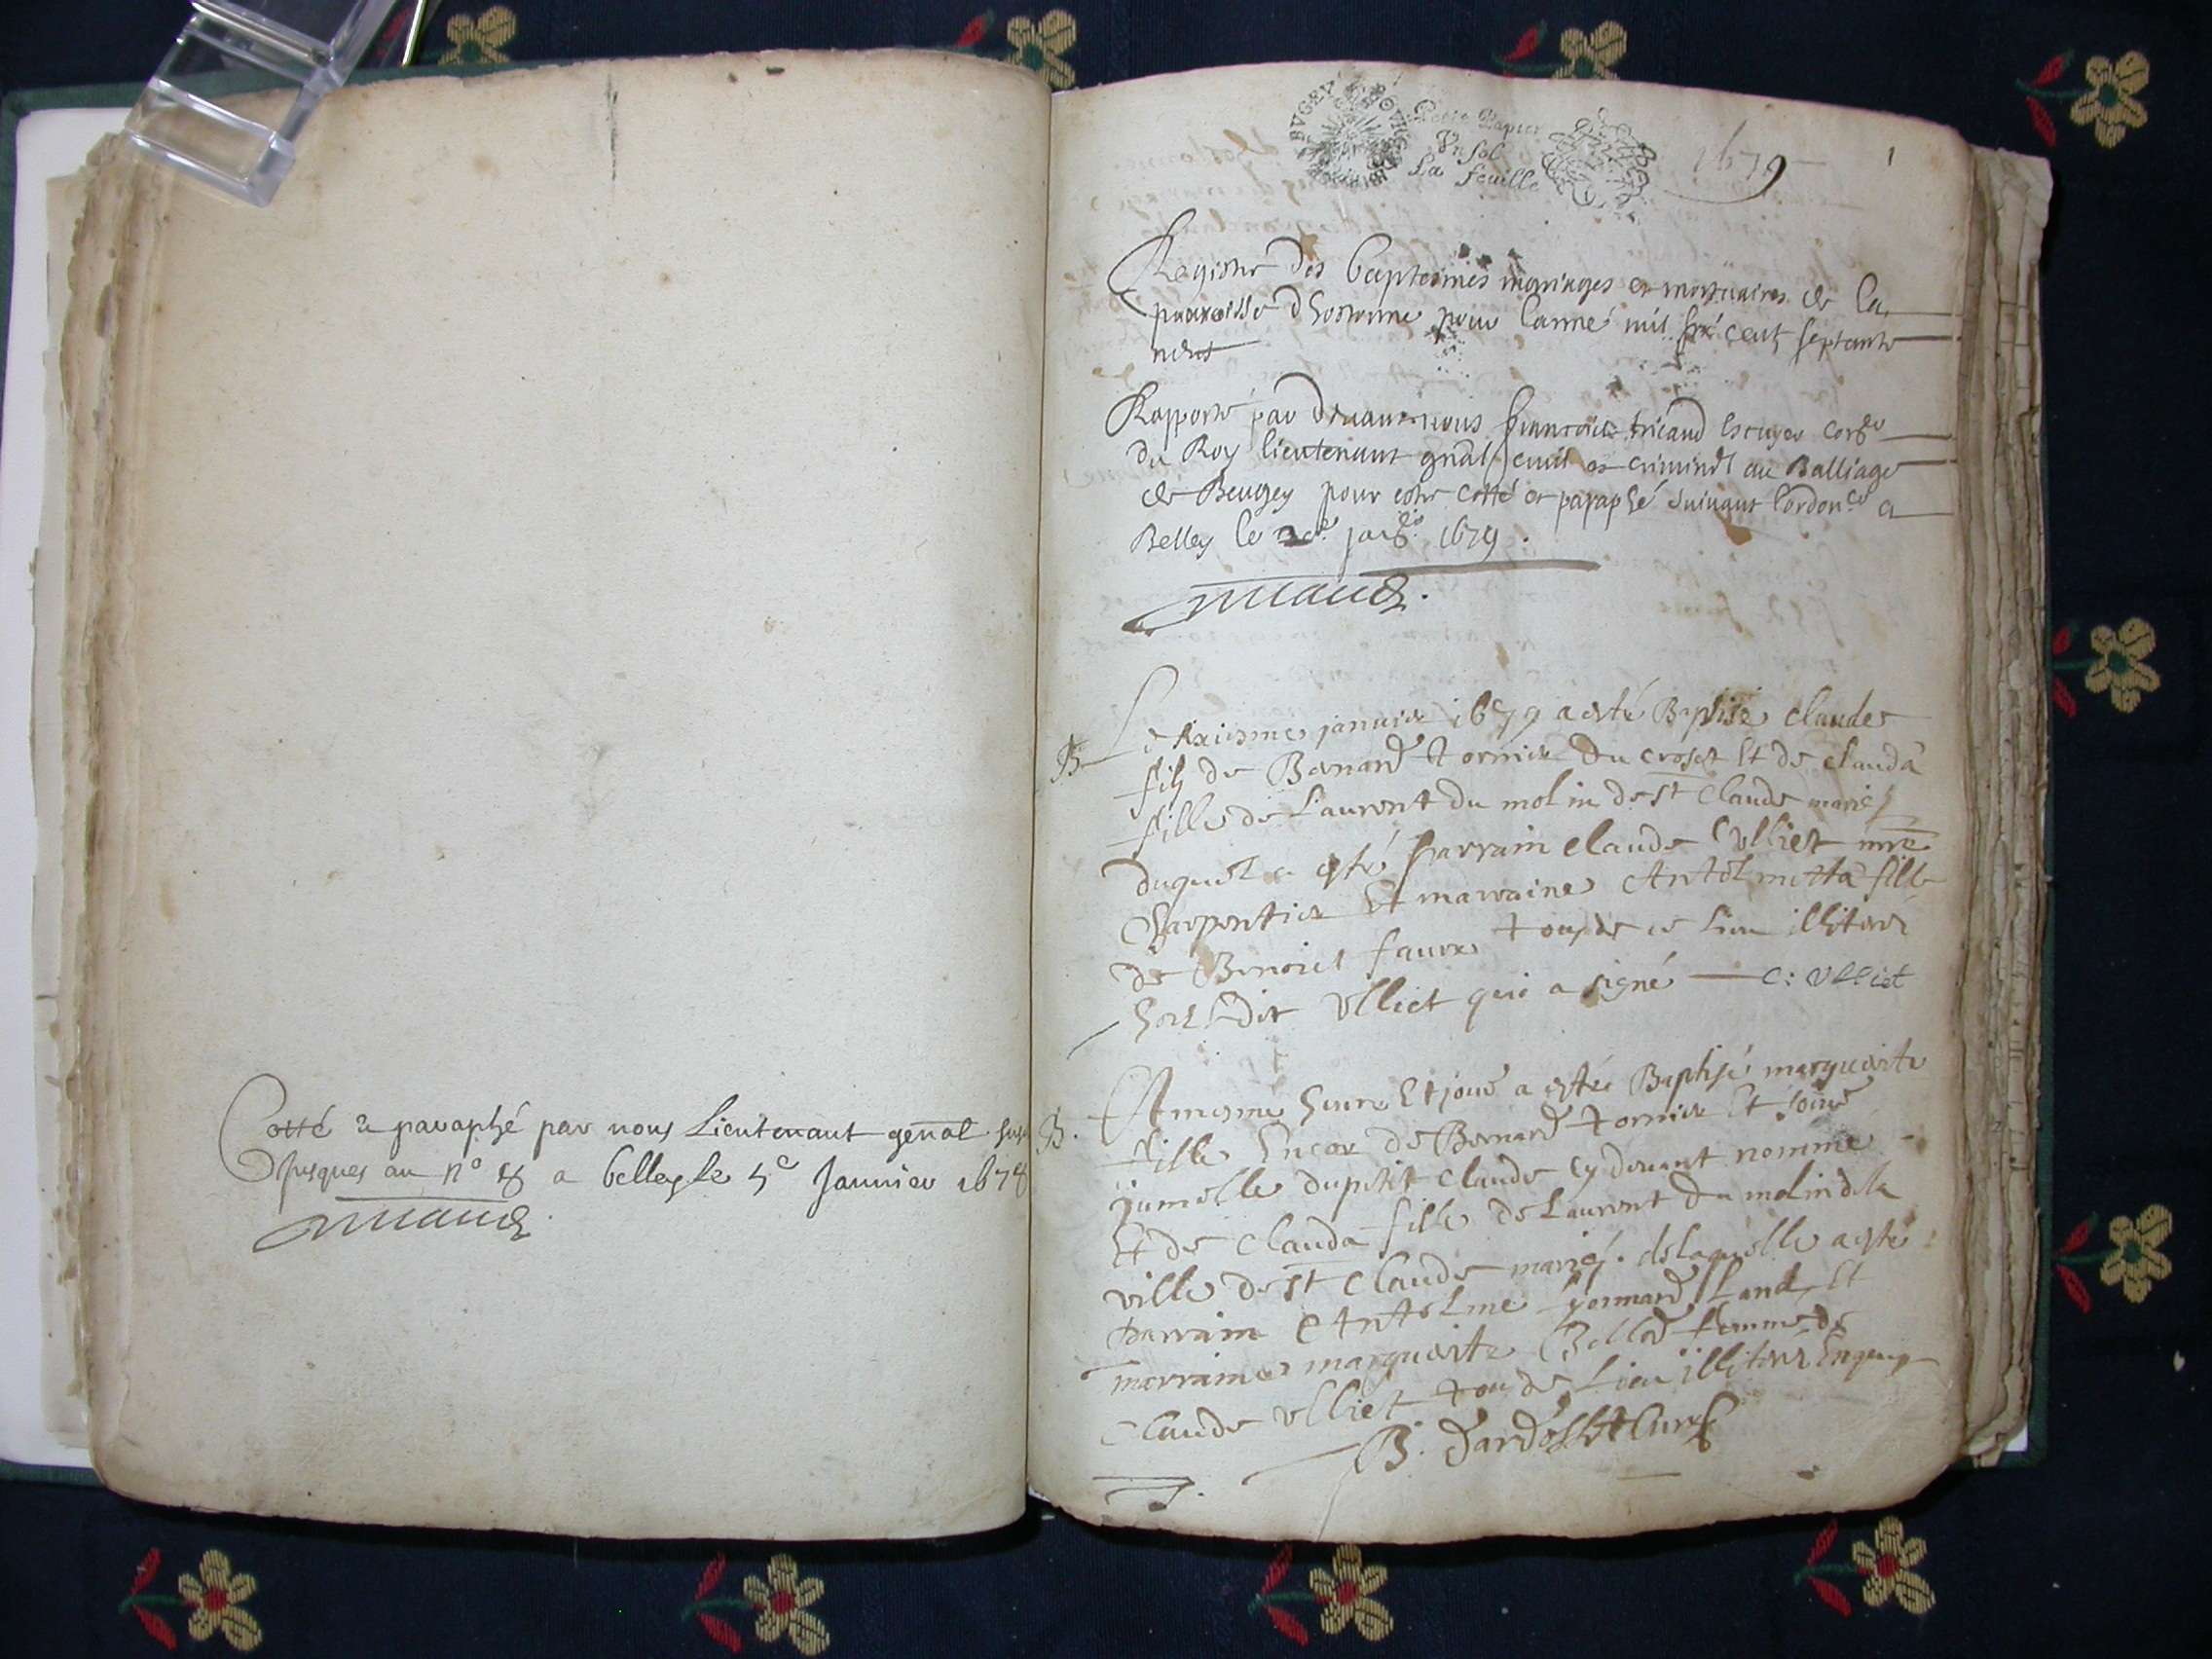 Cotté & paraphé par nous Lieutenant genal susd
Jusques au n° 8 a belley le 5e Janvier 1678
BVGEY
Petit Papier
Vn sol
La feuille
1679
1
Registre des baptesmes mariages et mortuaires de la
parroisse dhostonne pour lanné mil six cent septante
neuf
Rapporté par devant nous francois tricaud Escuyer
du Roy lieutenant gnal civil et criminel au Balliage
de Beugey pour estre cotté et paraphé suivant lordonce a
Belley le janer 1679.
B
Le sixiesme janvier 1679 a esté Baptisé claude
filz de Bernard tornier du croset Et de clauda
fille de Laurent du molin de st Claude mariez
duquel a esté parrain claude Ulliet mre
Charpentier Et marraine Antelmetta fille
de Benoict favre tous de ce lieu illiteré
hors Ledit Ulliet qui a signé — C: Ulliet
B.
Et mesme heure Et jour a esté Baptisé marguerite
fille Encor de Bernard tornier Et soeur
jumelle du petit claude cy devant nomme
Et de clauda fille de Laurent du molin de la
ville de st Claude mariez. de laquelle a esté
parrain Antelme Et
marraine marguerite femme de
Claude Ulliet tou de Lieu illiteré
B. Curé